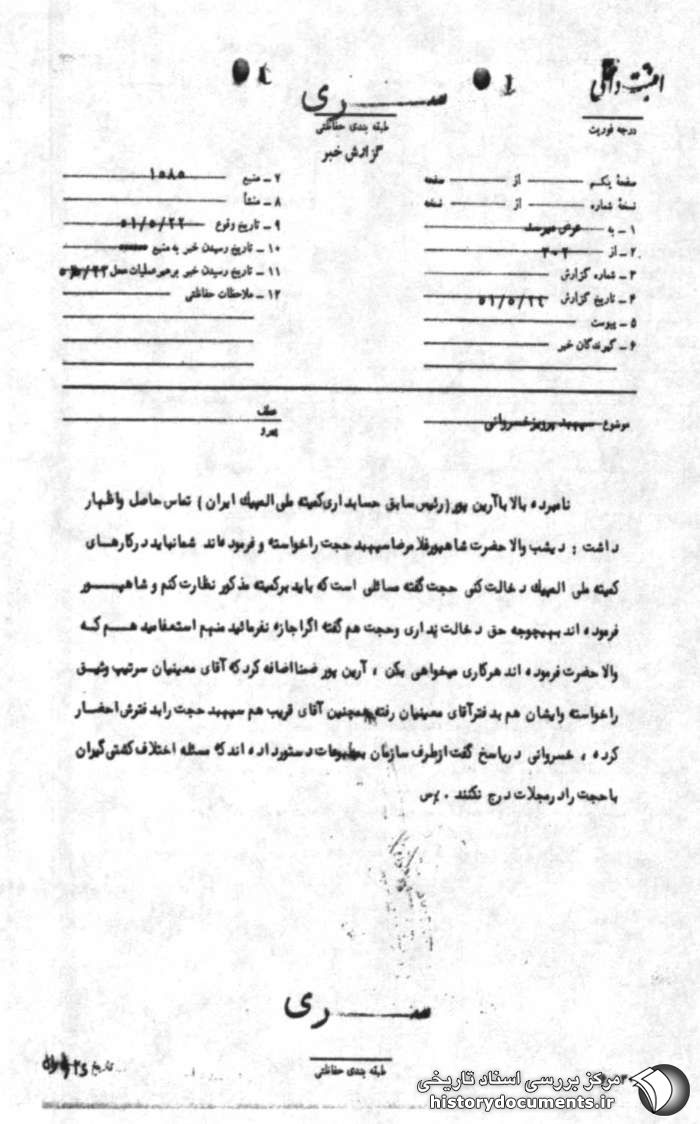 سری
طبقه بندی حفاظتی
درجه فوریت
گزارش خبر
صفحهٔ یکم از صفحه
نسخهٔ شماره از نسخه
۱ - به عرض میرسد
۲ - از ۳۰۲
۳ - شماره گزارش
۴ - تاریخ گزارش ۵۱/۵/۲٤
۵ - پیوست
۶ - گیرندگان خبر
۷ - منبع ۱۰۸۵
۸ - منشأ
۹ - تاریخ وقوع ۵۱/۵/۲۲
۱۰ - تاریخ رسیدن خبر به منبع
۱۱ - تاریخ رسیدن خبر برهبر عملیات محل
۱۲ - ملاحظات حفاظتی
موضوع سپهبد پرویز خسروانی
عطف
پیرو
نامبرده بالا با آرین پور (رئیس سابق حسابداری کمیته ملی المپیک ایران) تماس حاصل و اظهار
داشت : دیشب والا حضرت شاهپور غلامرضا سپهبد حجت را خواسته و فرموده اند شما نباید در کارهای
کمیته ملی المپیک دخالت کنی حجت گفته مسائلی است که باید بر کمیته مذکور نظارت کنم و شاهپور
فرموده اند بهیچوجه حق دخالت نداری و حجت هم گفته اگر اجازه نفرمائید منهم استعفا میدهم که
والا حضرت فرموده اند هر کاری میخواهی بکن ، آرین پور ضمنا اضافه کرد که آقای معینیان سرتیپ وثیق
را خواسته و ایشان هم بدفتر آقای معینیان رفته همچنین آقای قریب هم سپهبد حجت را بدفترش احضار
کرده ، خسروانی در پاسخ گفت از طرف سازمان بمطبوعات دستور داده اند که مسئله اختلاف کشتی گیران
با حجت را در مجلات درج نکنند .
سری
طبقه بندی حفاظتی
تاریخ
مرکز بررسی اسناد تاریخی
historydocuments.ir